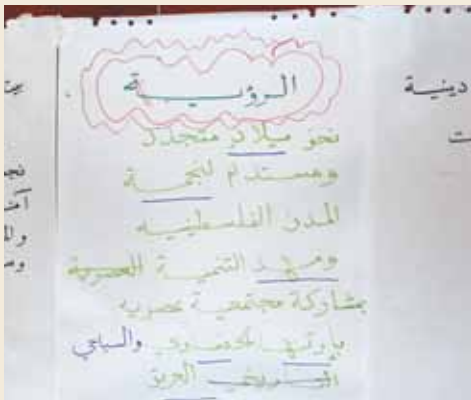 الرؤية
نحو ميلاد متجدد
ومستدام لنجمة
المدن الفلسطينيه
ومهد التنمية الحضرية
بمشاركة مجتمعية عصريه
بإرثها الحضري والبيئي
التاريخي العريق
دينية